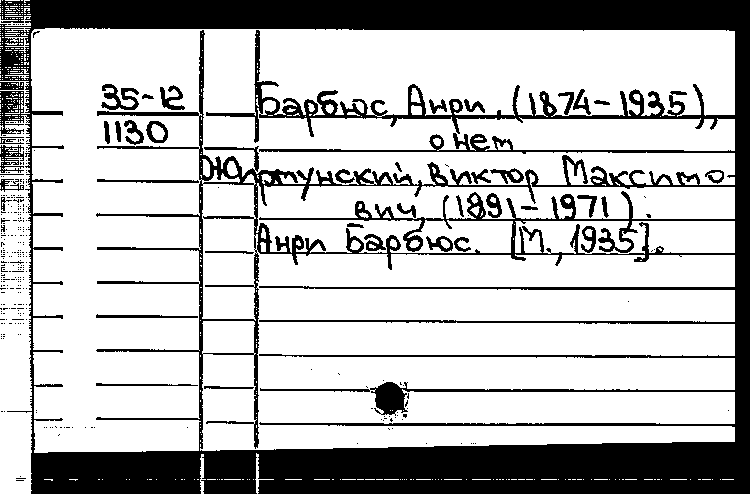 35-12 Барбюс, Анри, (1874-1935),
1130 о нем.
Жирмунский, Виктор Максимо-
вич, (1891-1971).
Анри Барбюс. [М., 1935].